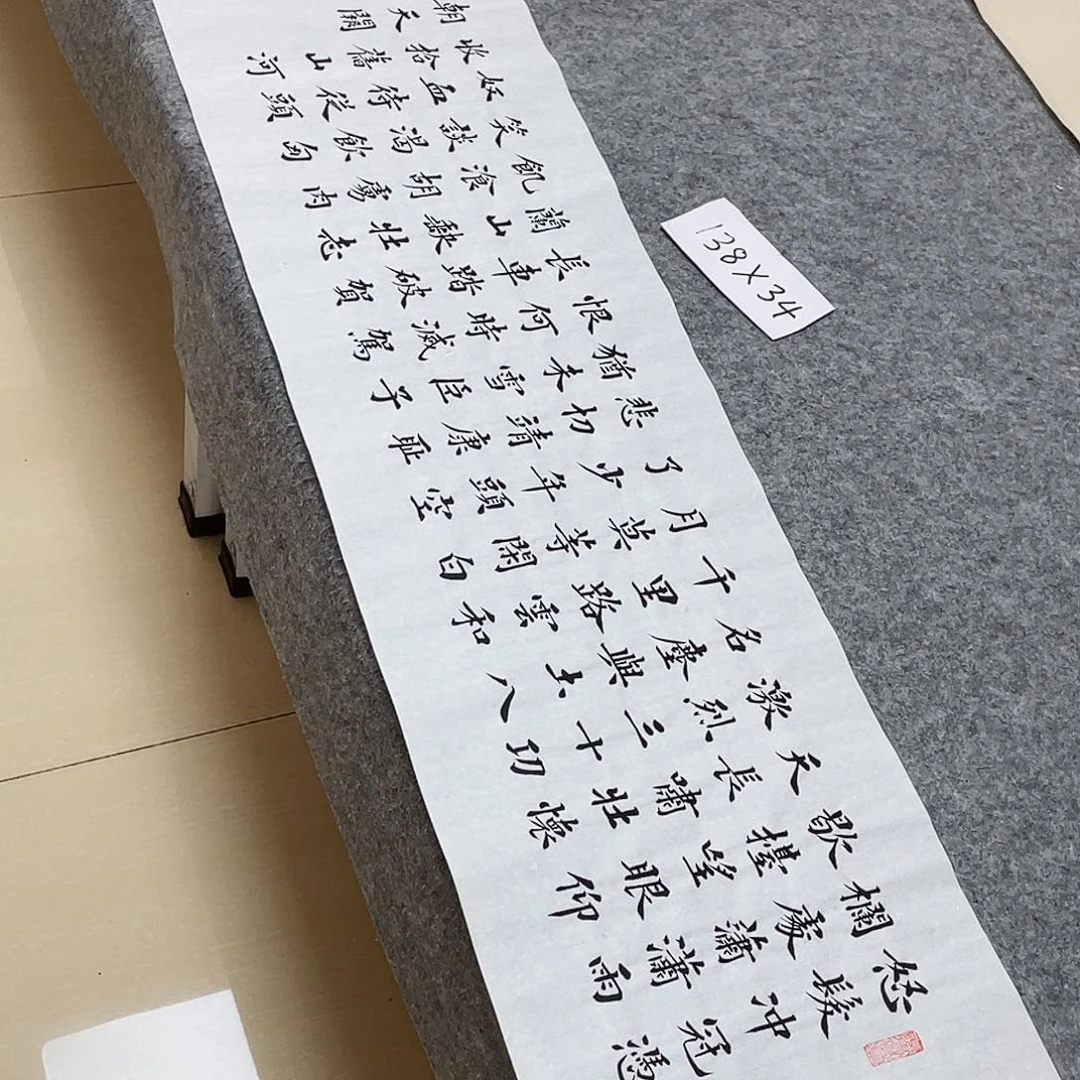 怒髮冲冠憑
欄處瀟瀟雨
歇擡望眼仰
天長嘯壯懷
激烈三十功
名塵與土八
千里路雲和
月莫等閑白
了少年頭空
悲切靖康耻
猶未雪臣子
恨何時滅駕
長車踏破賀
蘭山缺壯志
飢湌胡虜肉
笑談渴飲匈
奴血待從頭
收拾舊山河
朝天闕
138X34